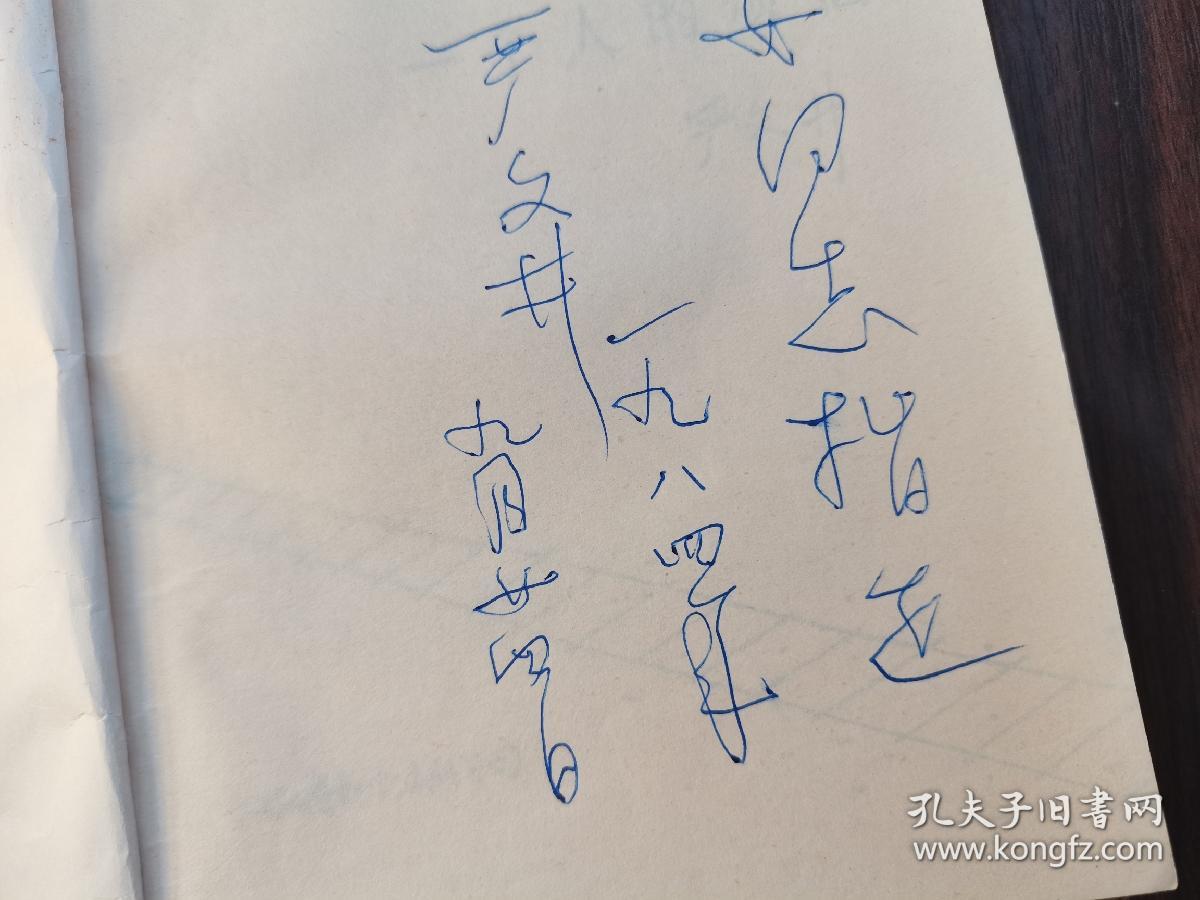 同志指正
一九八四年
严文井
九月廿四日
孔夫子旧书网
www.kongfz.com